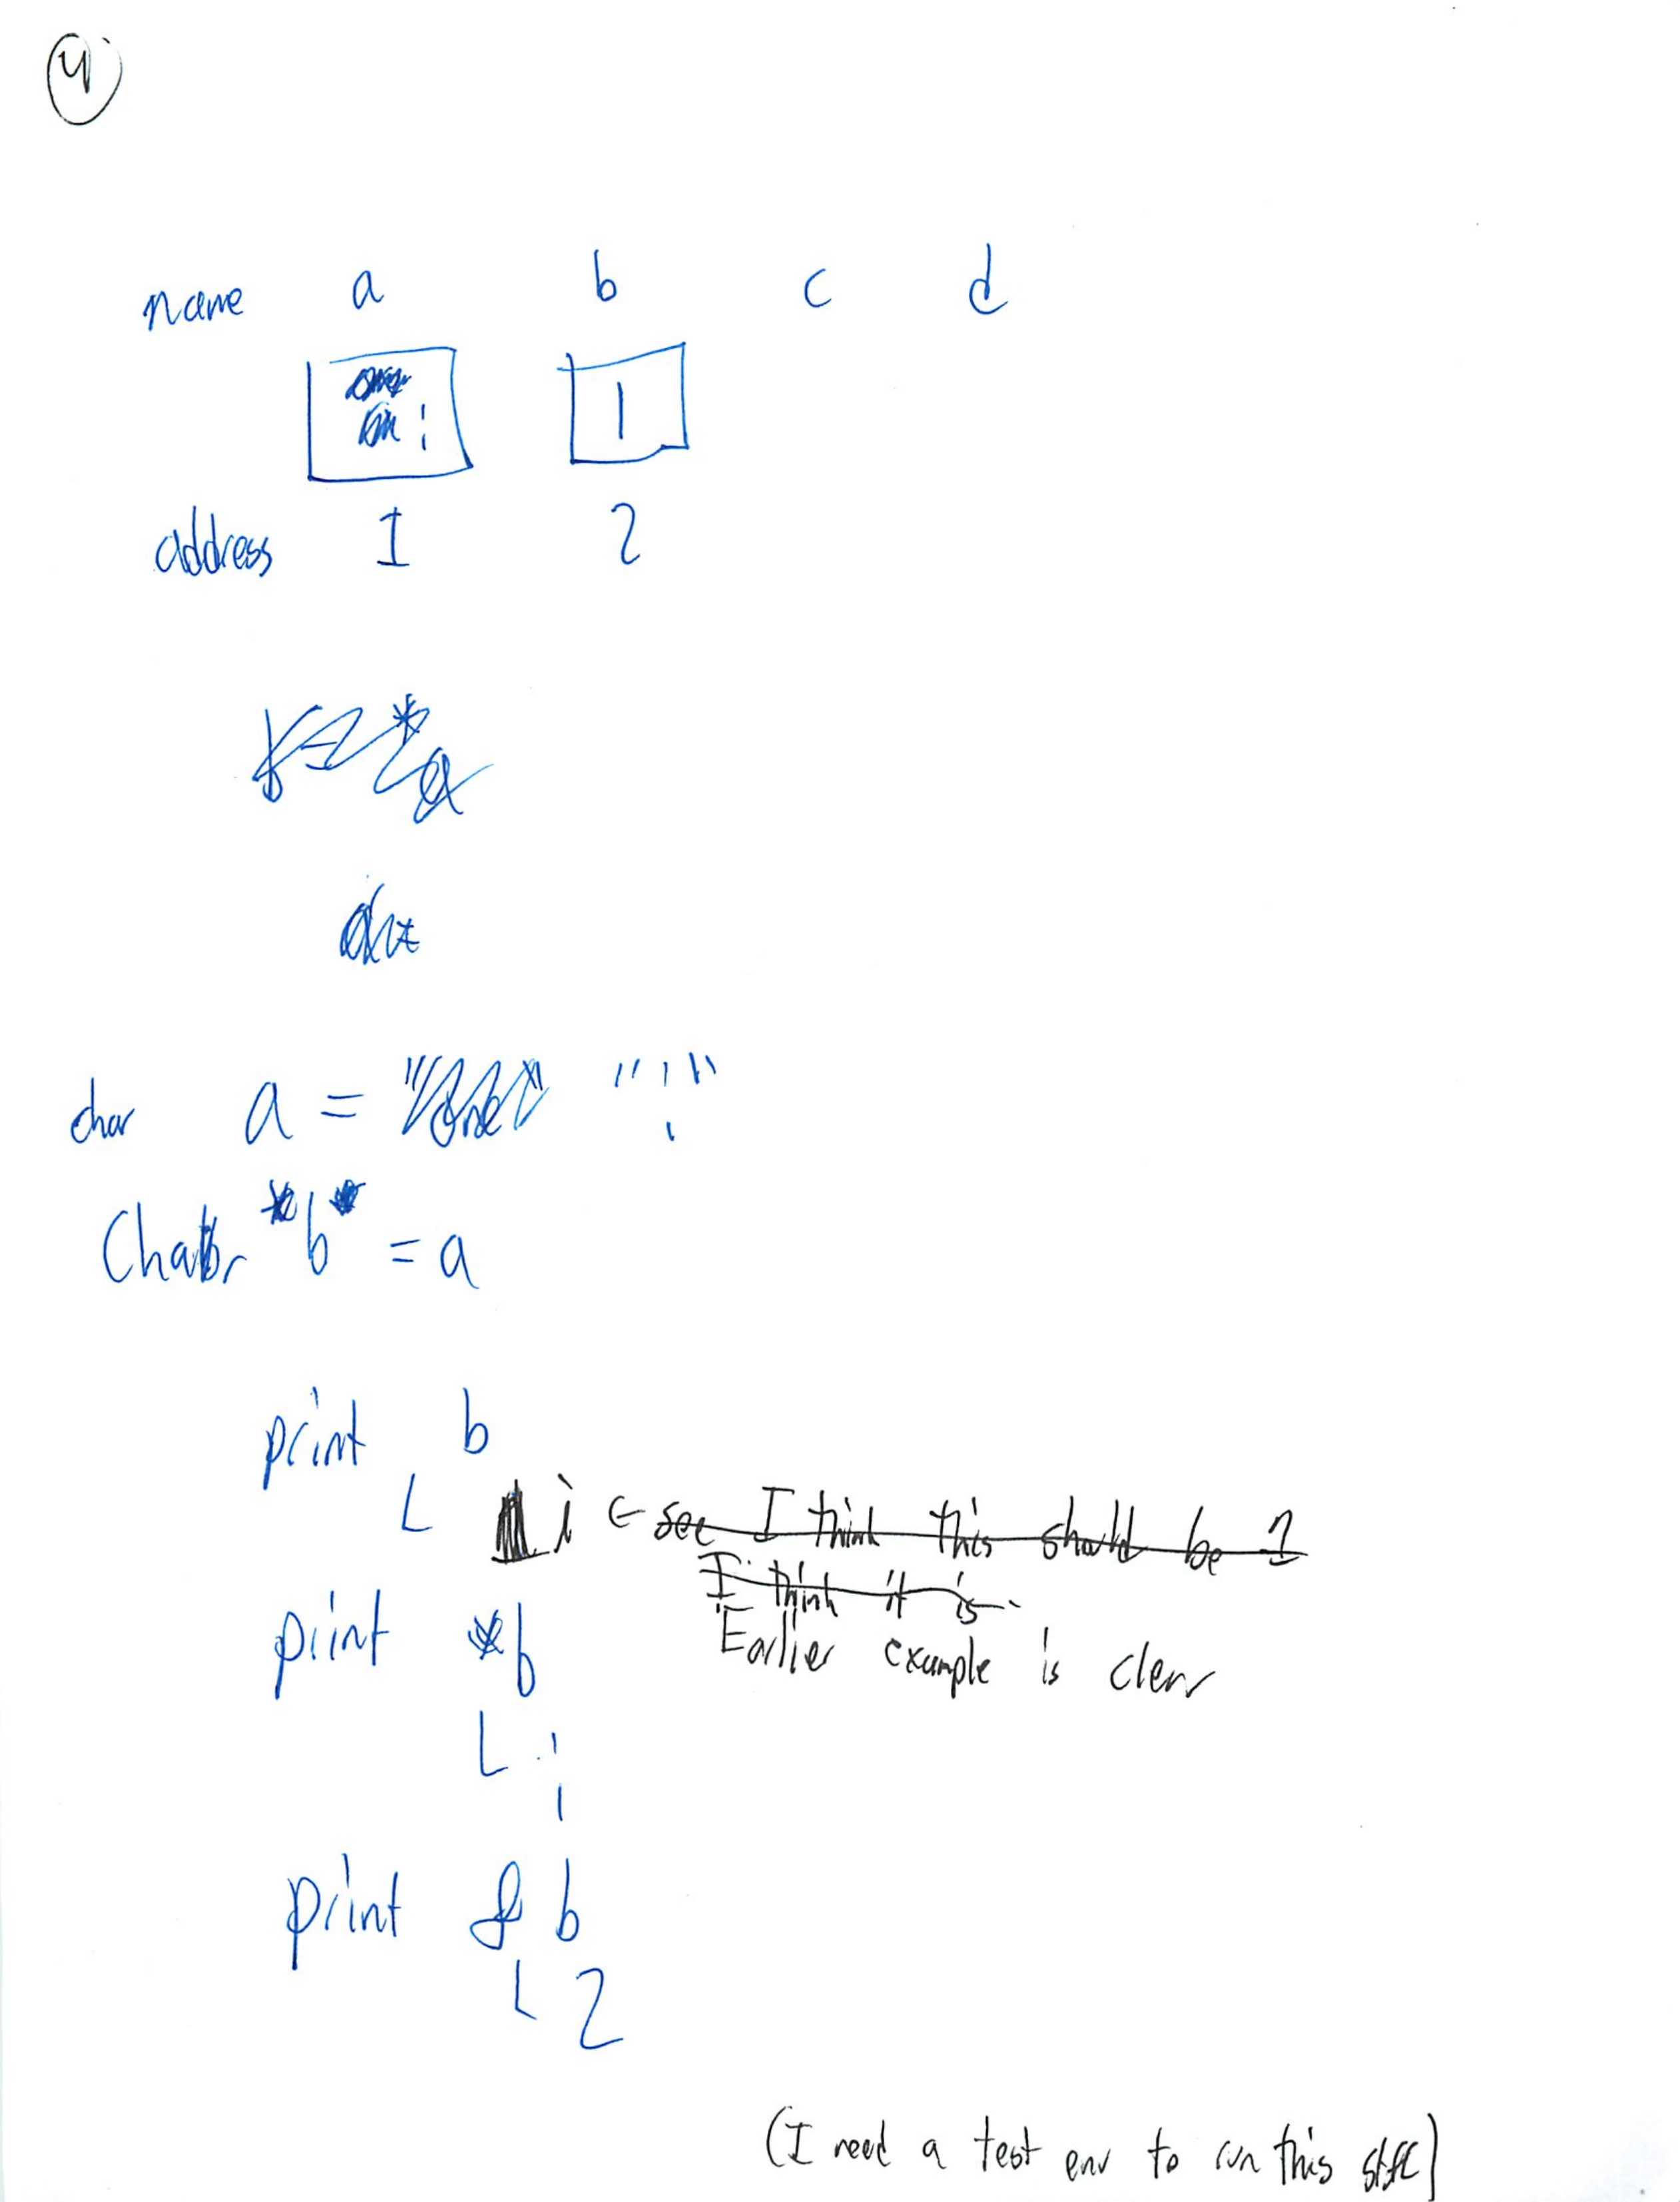 4
name a b c d
¡ 1
address 1 2
char a = "¡"
Char *b = a
print b
L i ← see I think this should be 1
I think it is.
Earlier example is clear
print *b
L ¡
print & b
L 2
(I need a test env to run this stuff)